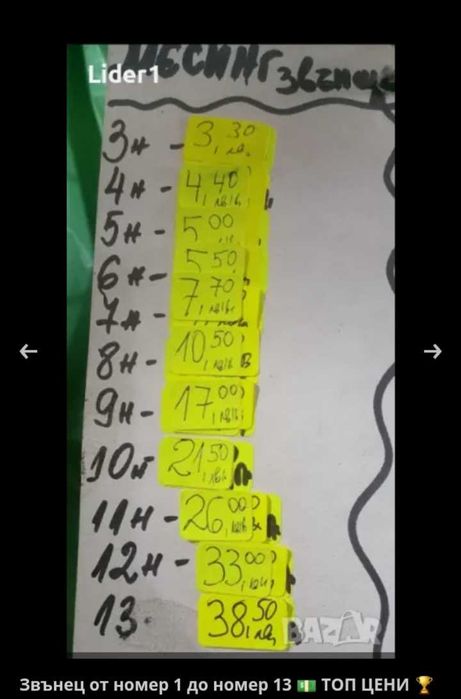 МЕСИНГ
Lider1
звънец
3н - 3,30 лв.
4н - 4,40 лв
5н - 5,00
6н - 5,50
7н - 7,70 лв
8н - 10,50 лв
9н - 17,00 лв
10н 21,50 лв
11н - 26,00 лв
12н - 33,00 лв
13. 38,50 лв
BAZAR
Звънец от номер 1 до номер 13 💵 ТОП ЦЕНИ 🏆